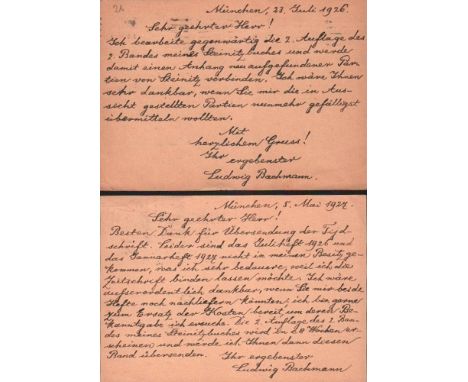 München, 23. Juli 1926.
Sehr geehrter Herr!
Ich bearbeite gegenwärtig die 2. Auflage des
2. Bandes meines Steinitzbuches und werde
damit einen Anhang neu aufgefundener Par-
tien von Steinitz verbinden. Ich wäre Ihnen
sehr dankbar, wenn Sie mir die in Aus-
sicht gestellten Partien nunmehr gefälligst
übermitteln wollten.
Mit
herzlichem Gruss!
Ihr
ergebenster
Ludwig Bachmann.
München, 5. Mai 1927.
Sehr geehrter Herr!
Besten Dank für Übersendung der Tijd
schrift. Leider sind das Juliheft 1926 und
das Januarheft 1927 nicht in meinen Besitz ge-
kommen, was ich sehr bedaure, weil ich die
Zeitschrift binden lassen möchte. Ich wäre
ausserordentlich dankbar, wenn Sie mir beide
Hefte noch nachliefern könnten; ich bin gerne
zum Ersatz der Kosten bereit, um deren Be-
kanntgabe ich ersuche. Die 2. Auflage des 2. Ban-
des meines Steinitzbuches wird in Wochen er-
scheinen und werde ich Ihnen dann diesen
Band übersenden. Ihr ergebenster
Ludwig Bachmann